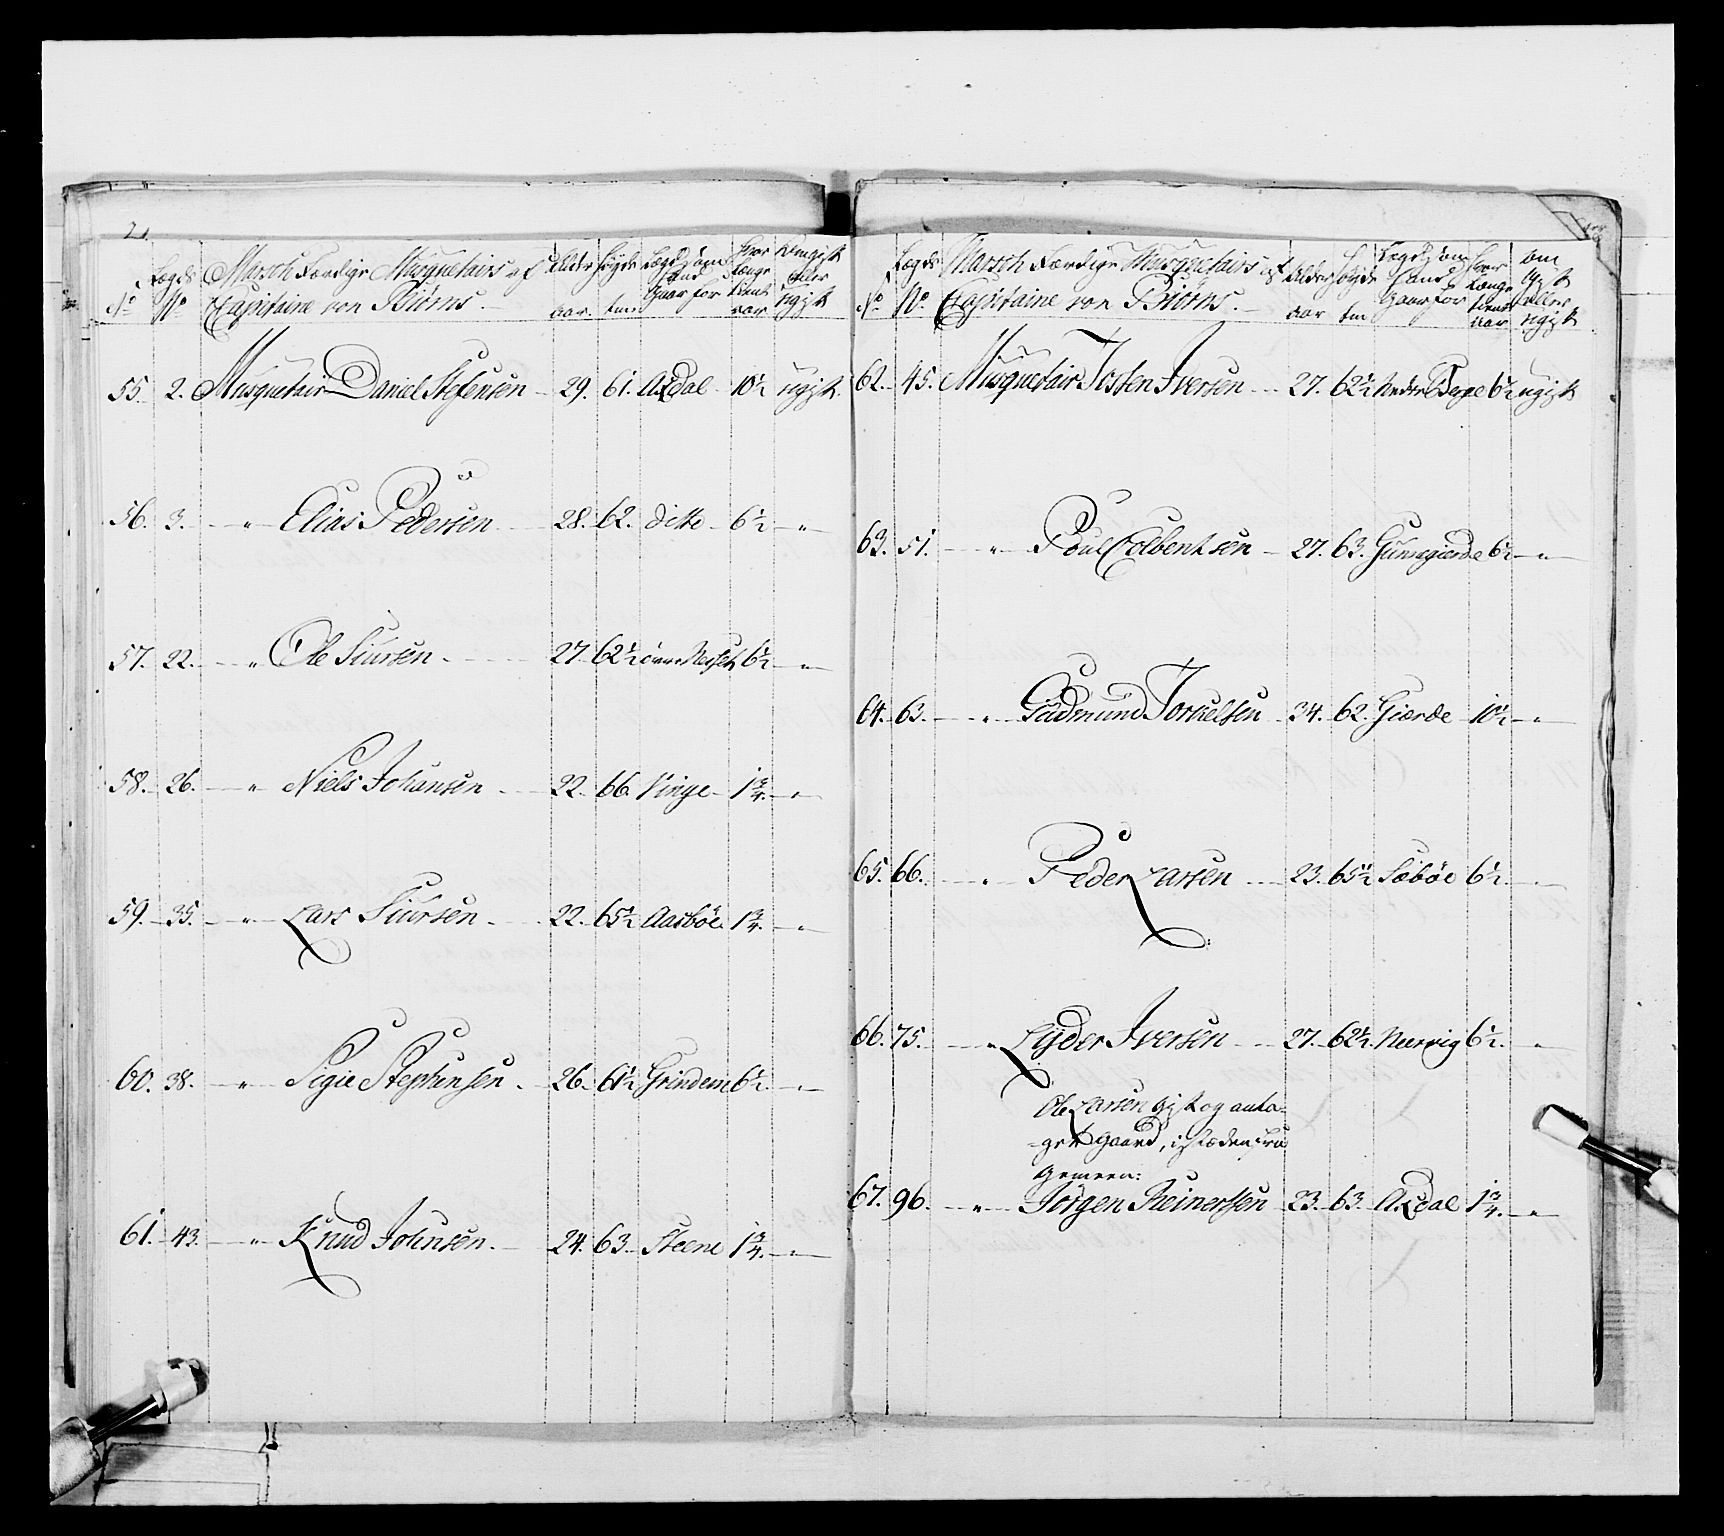 2.
No Lægds No Marsch Færdige Musquetairs af Capitaine von Biörns. Alder aar. Høyde tm. Lægd som Hand Gaar for Hvor Længe tient aar Om gift eller ugift
55. 2. Musquetair Daniel Stefensen 29. 61. Axdal 10½ ugift
56. 3. " Elias Pedersen 28. 62. ditto 6½ "
57. 22. " Ole Siursen 27. 62½ øvre Nesset 6½ "
58. 26. " Niels Johansen 22. 66. Vinge 1¾ "
59. 35. " Lars Siursen 22. 65½ Aasböe 1¾ "
60. 38. " Sigve Stephensen 26. 61½ Grindem 6½ "
61. 43. " Knud Johnsen 24. 63. Steene 1¾ "
No Lægds No Marsch Færdige Musquetairs af Capitaine von Biörns. Alder aar Høyde tm Lægd som Hand Gaar for Hvor Længe tient aar om Gift eller ugift
62. 45. Musquetair Tosten Iversen 27. 62½ Neder Berge 6½ ugift
63. 51. " Poul Colbentsen 27. 63. Gunnegierde 6½ "
64. 63. " Gudmund Torkelsen 34. 62. Gierde 10½ "
65. 66. " Peder Larsen 23. 65½ Sæböe 6½ "
66. 75. " Lyder Iversen 27. 62½ Nervig 6½ "
Ole Larsen gift og anta-
get gaard, i stæden fra
Gemeen:
67. 96. " Jörgen Reinertsen 23. 63. Axdal 1¾ "